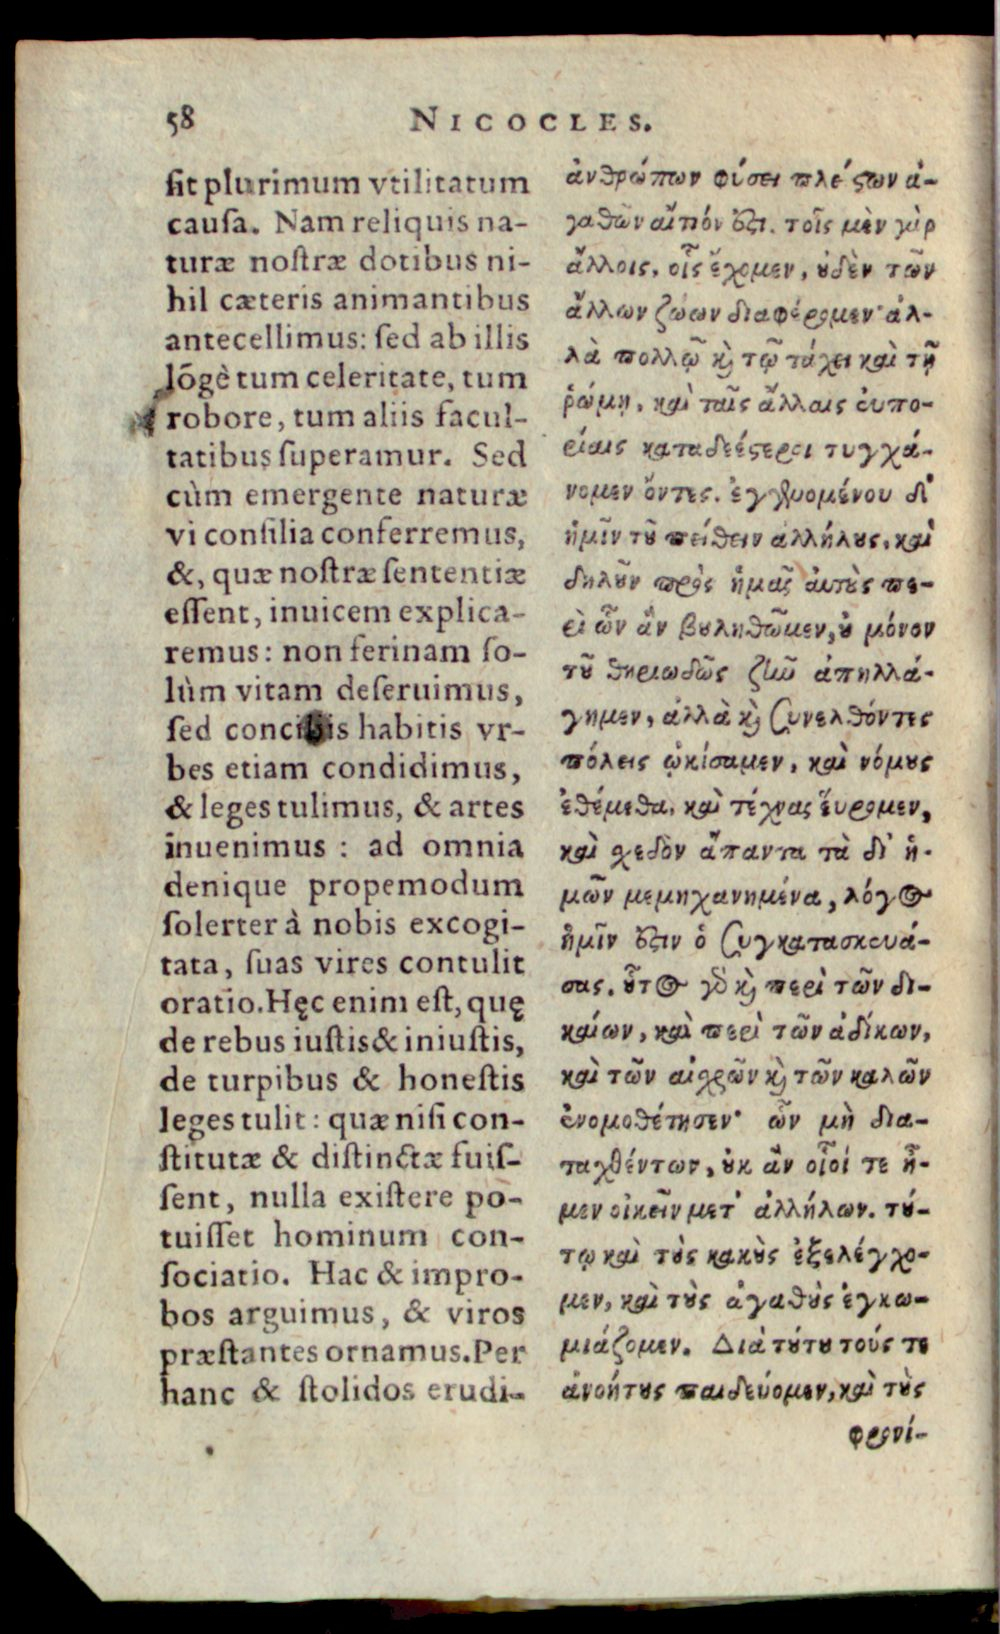 58 NICOCLES.
sit plurimum vtilitatum
causa. Nam reliquis na-
turæ nostræ dotibus ni-
hil cæteris animantibus
antecellimus: sed ab illis
lõgè tum celeritate, tum
robore, tum aliis facul-
tatibus superamur. Sed
cùm emergente naturæ
vi consilia conferremus,
&, quæ nostræ sententiæ
essent, inuicem explica-
remus: non ferinam so-
lùm vitam deseruimus,
sed conciliis habitis vr-
bes etiam condidimus,
& leges tulimus, & artes
inuenimus : ad omnia
denique propemodum
solerter à nobis excogi-
tata, suas vires contulit
oratio. Hęc enim est, quę
de rebus iustis & iniustis,
de turpibus & honestis
leges tulit: quæ nisi con-
stitutæ & distinctæ fuis-
sent, nulla existere po-
tuisset hominum con-
sociatio. Hac & impro-
bos arguimus, & viros
præstantes ornamus. Per
hanc & stolidos erudi-
ἀνθρώπων φύσει πλείστων ἀ-
γαθῶν αἴτιόν ὅστι. τοῖς μὲν γὰρ
ἄλλοις, οἷς ἔχομεν, οὐδὲν τῶν
ἄλλων ζώων διαφέρομεν· ἀλ-
λὰ πολλῷ καὶ τῷ τάχει καὶ τῇ
ῥώμῃ, καὶ ταῖς ἄλλαις εὐπο-
ρίαις καταδεέστεροι τυγχά-
νομεν ὄντες. ἐγγενομένου δ'
ἡμῖν τοῦ πείθειν ἀλλήλους, καὶ
δηλοῦν πρὸς ἡμᾶς αὐτοὺς πε-
ρὶ ὧν ἂν βουληθῶμεν, οὐ μόνον
τοῦ θηριωδῶς ζῆν ἀπηλλά-
γημεν, ἀλλὰ καὶ συνελθόντες
πόλεις ᾠκίσαμεν, καὶ νόμους
ἐθέμεθα, καὶ τέχνας εὕρομεν,
καὶ σχεδὸν ἅπαντα τὰ δι' ἡ-
μῶν μεμηχανημένα, λόγος
ἡμῖν ἐστιν ὁ συγκατασκευά-
σας. οὗτος γὸ καὶ περὶ τῶν δι-
καίων, καὶ περὶ τῶν ἀδίκων,
καὶ τῶν αἰσχρῶν καὶ τῶν καλῶν
ἐνομοθέτησεν· ὧν μὴ δια-
ταχθέντων, οὐκ ἂν οἷοί τε ἦ-
μεν οἰκεῖν μετ' ἀλλήλων. τού-
τῳ καὶ τοὺς κακοὺς ἐξελέγχο-
μεν, καὶ τοὺς ἀγαθοὺς ἐγκω-
μιάζομεν. Διὰ τούτου τούς τε
ἀνοήτους παιδεύομεν, καὶ τοὺς
φρονί-